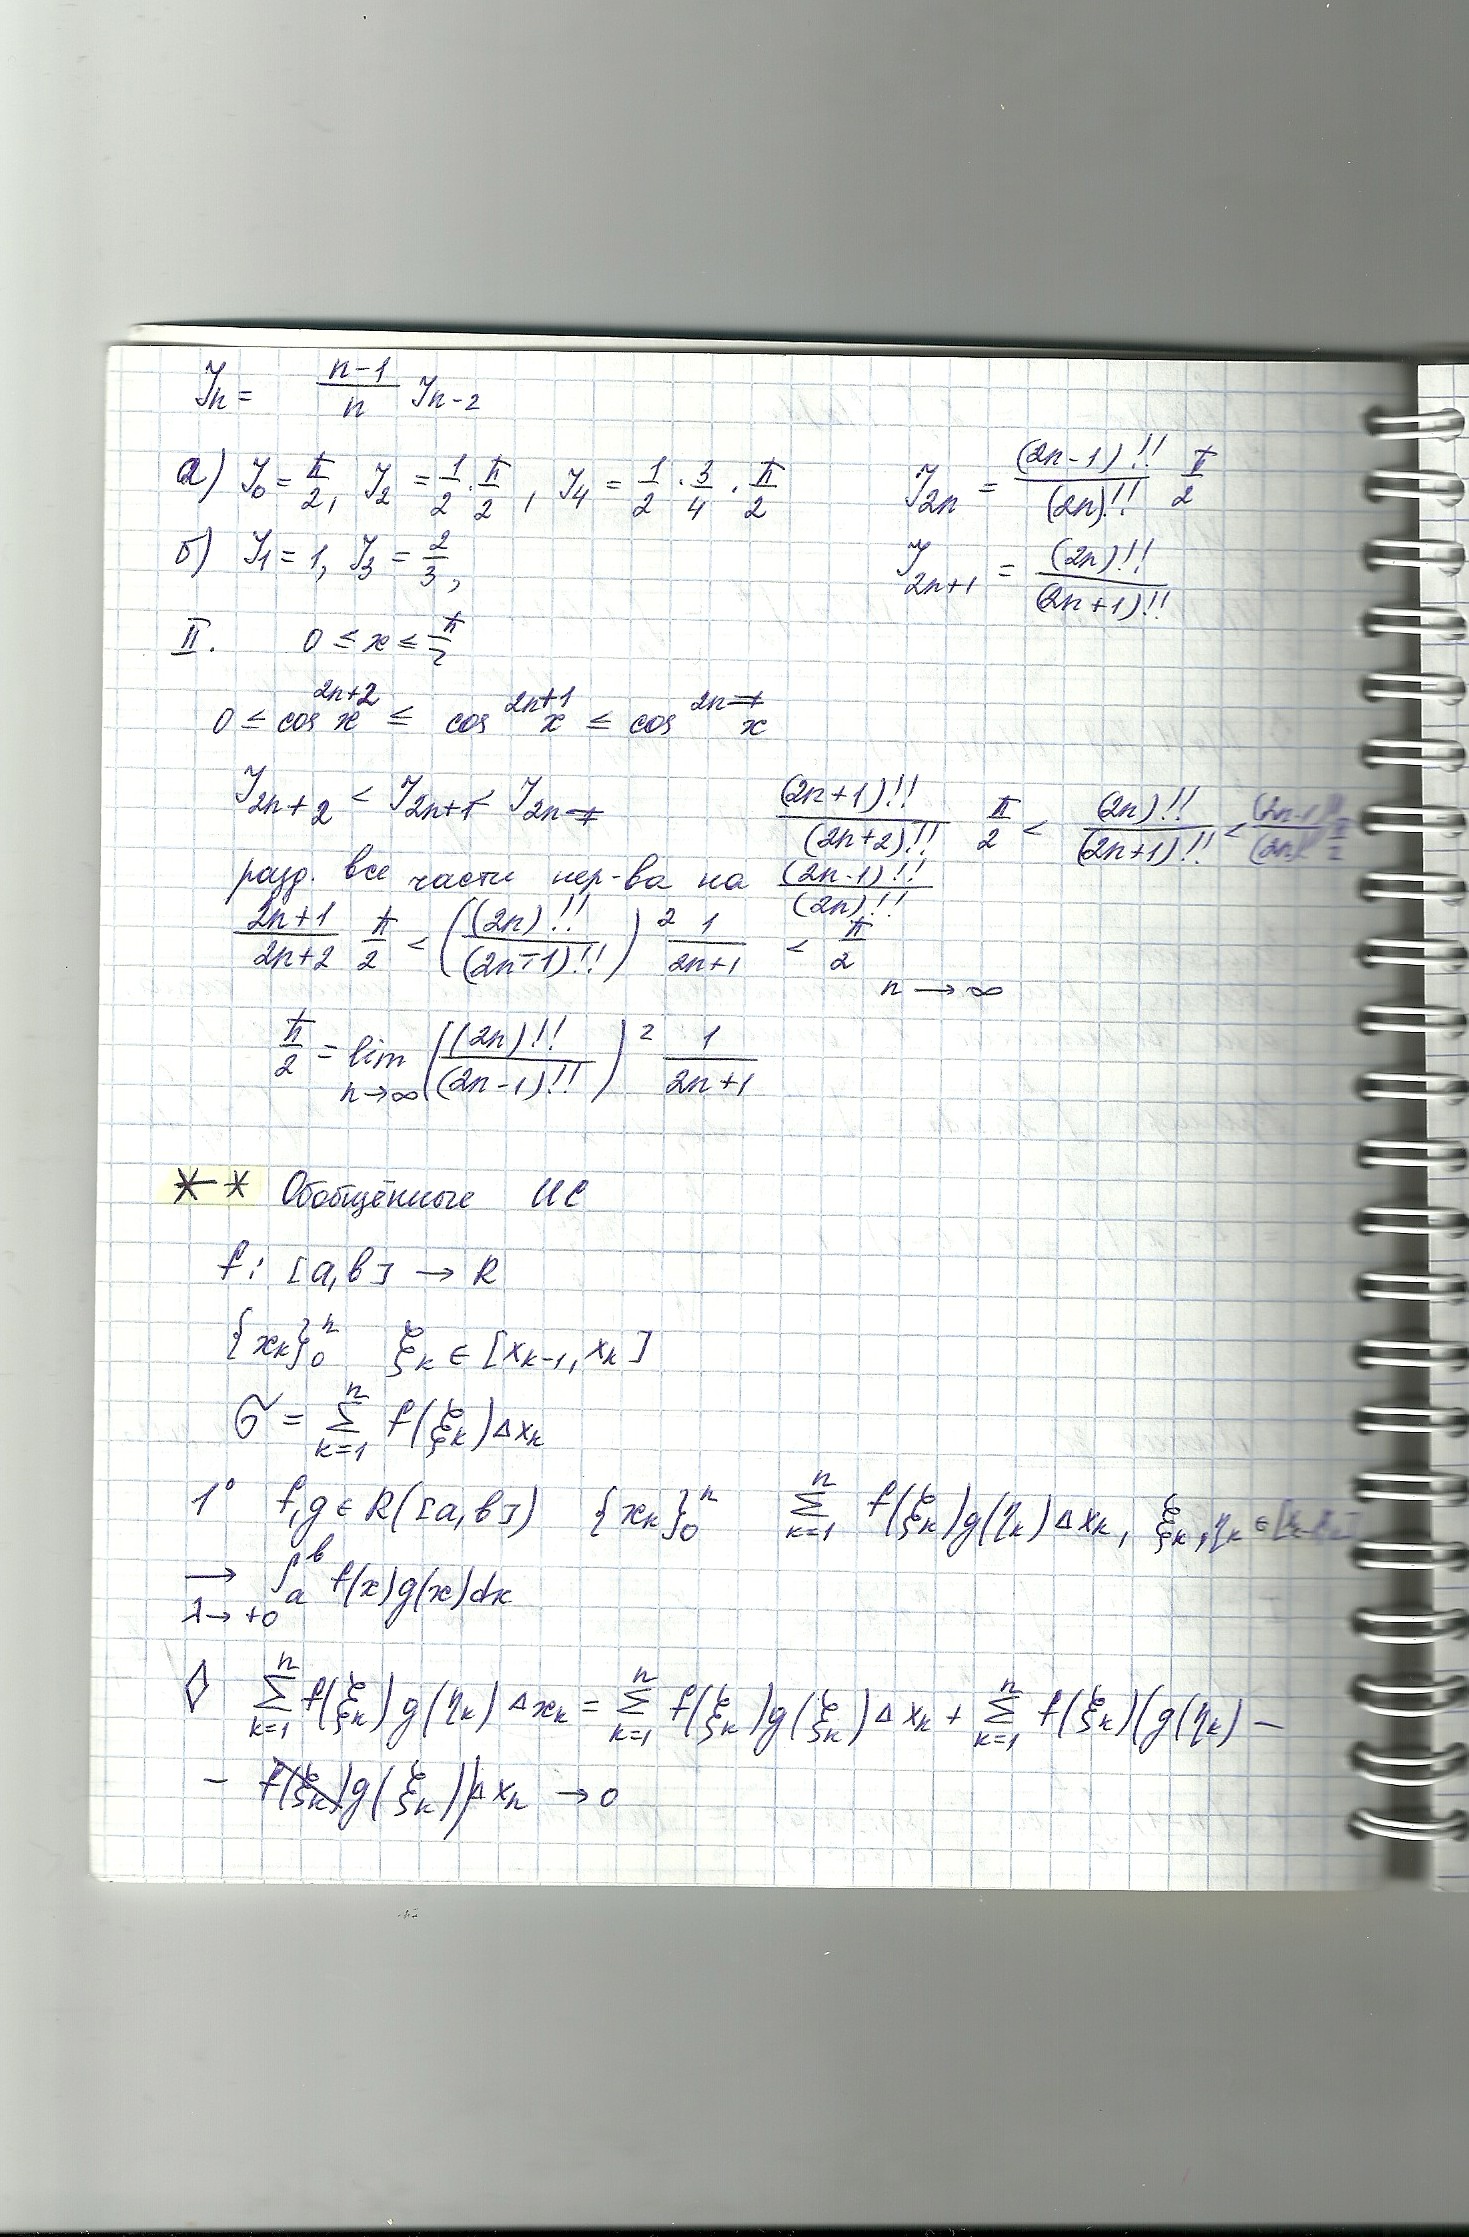 J_n = (n-1)/n J_{n-2}
а) J_0 = π/2, J_2 = 1/2 · π/2, J_4 = 1/2 · 3/4 · π/2   J_{2n} = (2n-1)!!/(2n)!! π/2
б) J_1 = 1, J_3 = 2/3,   J_{2n+1} = (2n)!!/(2n+1)!!
II. 0 ≤ x ≤ π/2
0 ≤ cos^{2n+2} x ≤ cos^{2n+1} x ≤ cos^{2n} x
J_{2n+2} < J_{2n+1} < J_{2n}   (2n+1)!!/(2n+2)!! π/2 < (2n)!!/(2n+1)!! < (2n-1)!!/(2n)!! π/2
разд. все части нер-ва на (2n-1)!!/(2n)!!
(2n+1)/(2n+2) π/2 < ((2n)!!/(2n-1)!!)^2 1/(2n+1) < π/2
n → ∞
π/2 = lim_{n→∞} ((2n)!!/(2n-1)!!)^2 1/(2n+1)
** Обобщённые ИС
f: [a,b] → R
{x_k}_0^n ξ_k ∈ [x_{k-1}, x_k]
σ = Σ_{k=1}^n f(ξ_k)Δx_k
1° f,g ∈ R([a,b]) {x_k}_0^n Σ_{k=1}^n f(ξ_k)g(η_k)Δx_k, ξ_k, η_k ∈
→_{λ→+0} ∫_a^b f(x)g(x)dx
◊ Σ_{k=1}^n f(ξ_k)g(η_k)Δx_k = Σ_{k=1}^n f(ξ_k)g(ξ_k)Δx_k + Σ_{k=1}^n f(ξ_k)(g(η_k) −
− g(ξ_k))Δx_k → 0